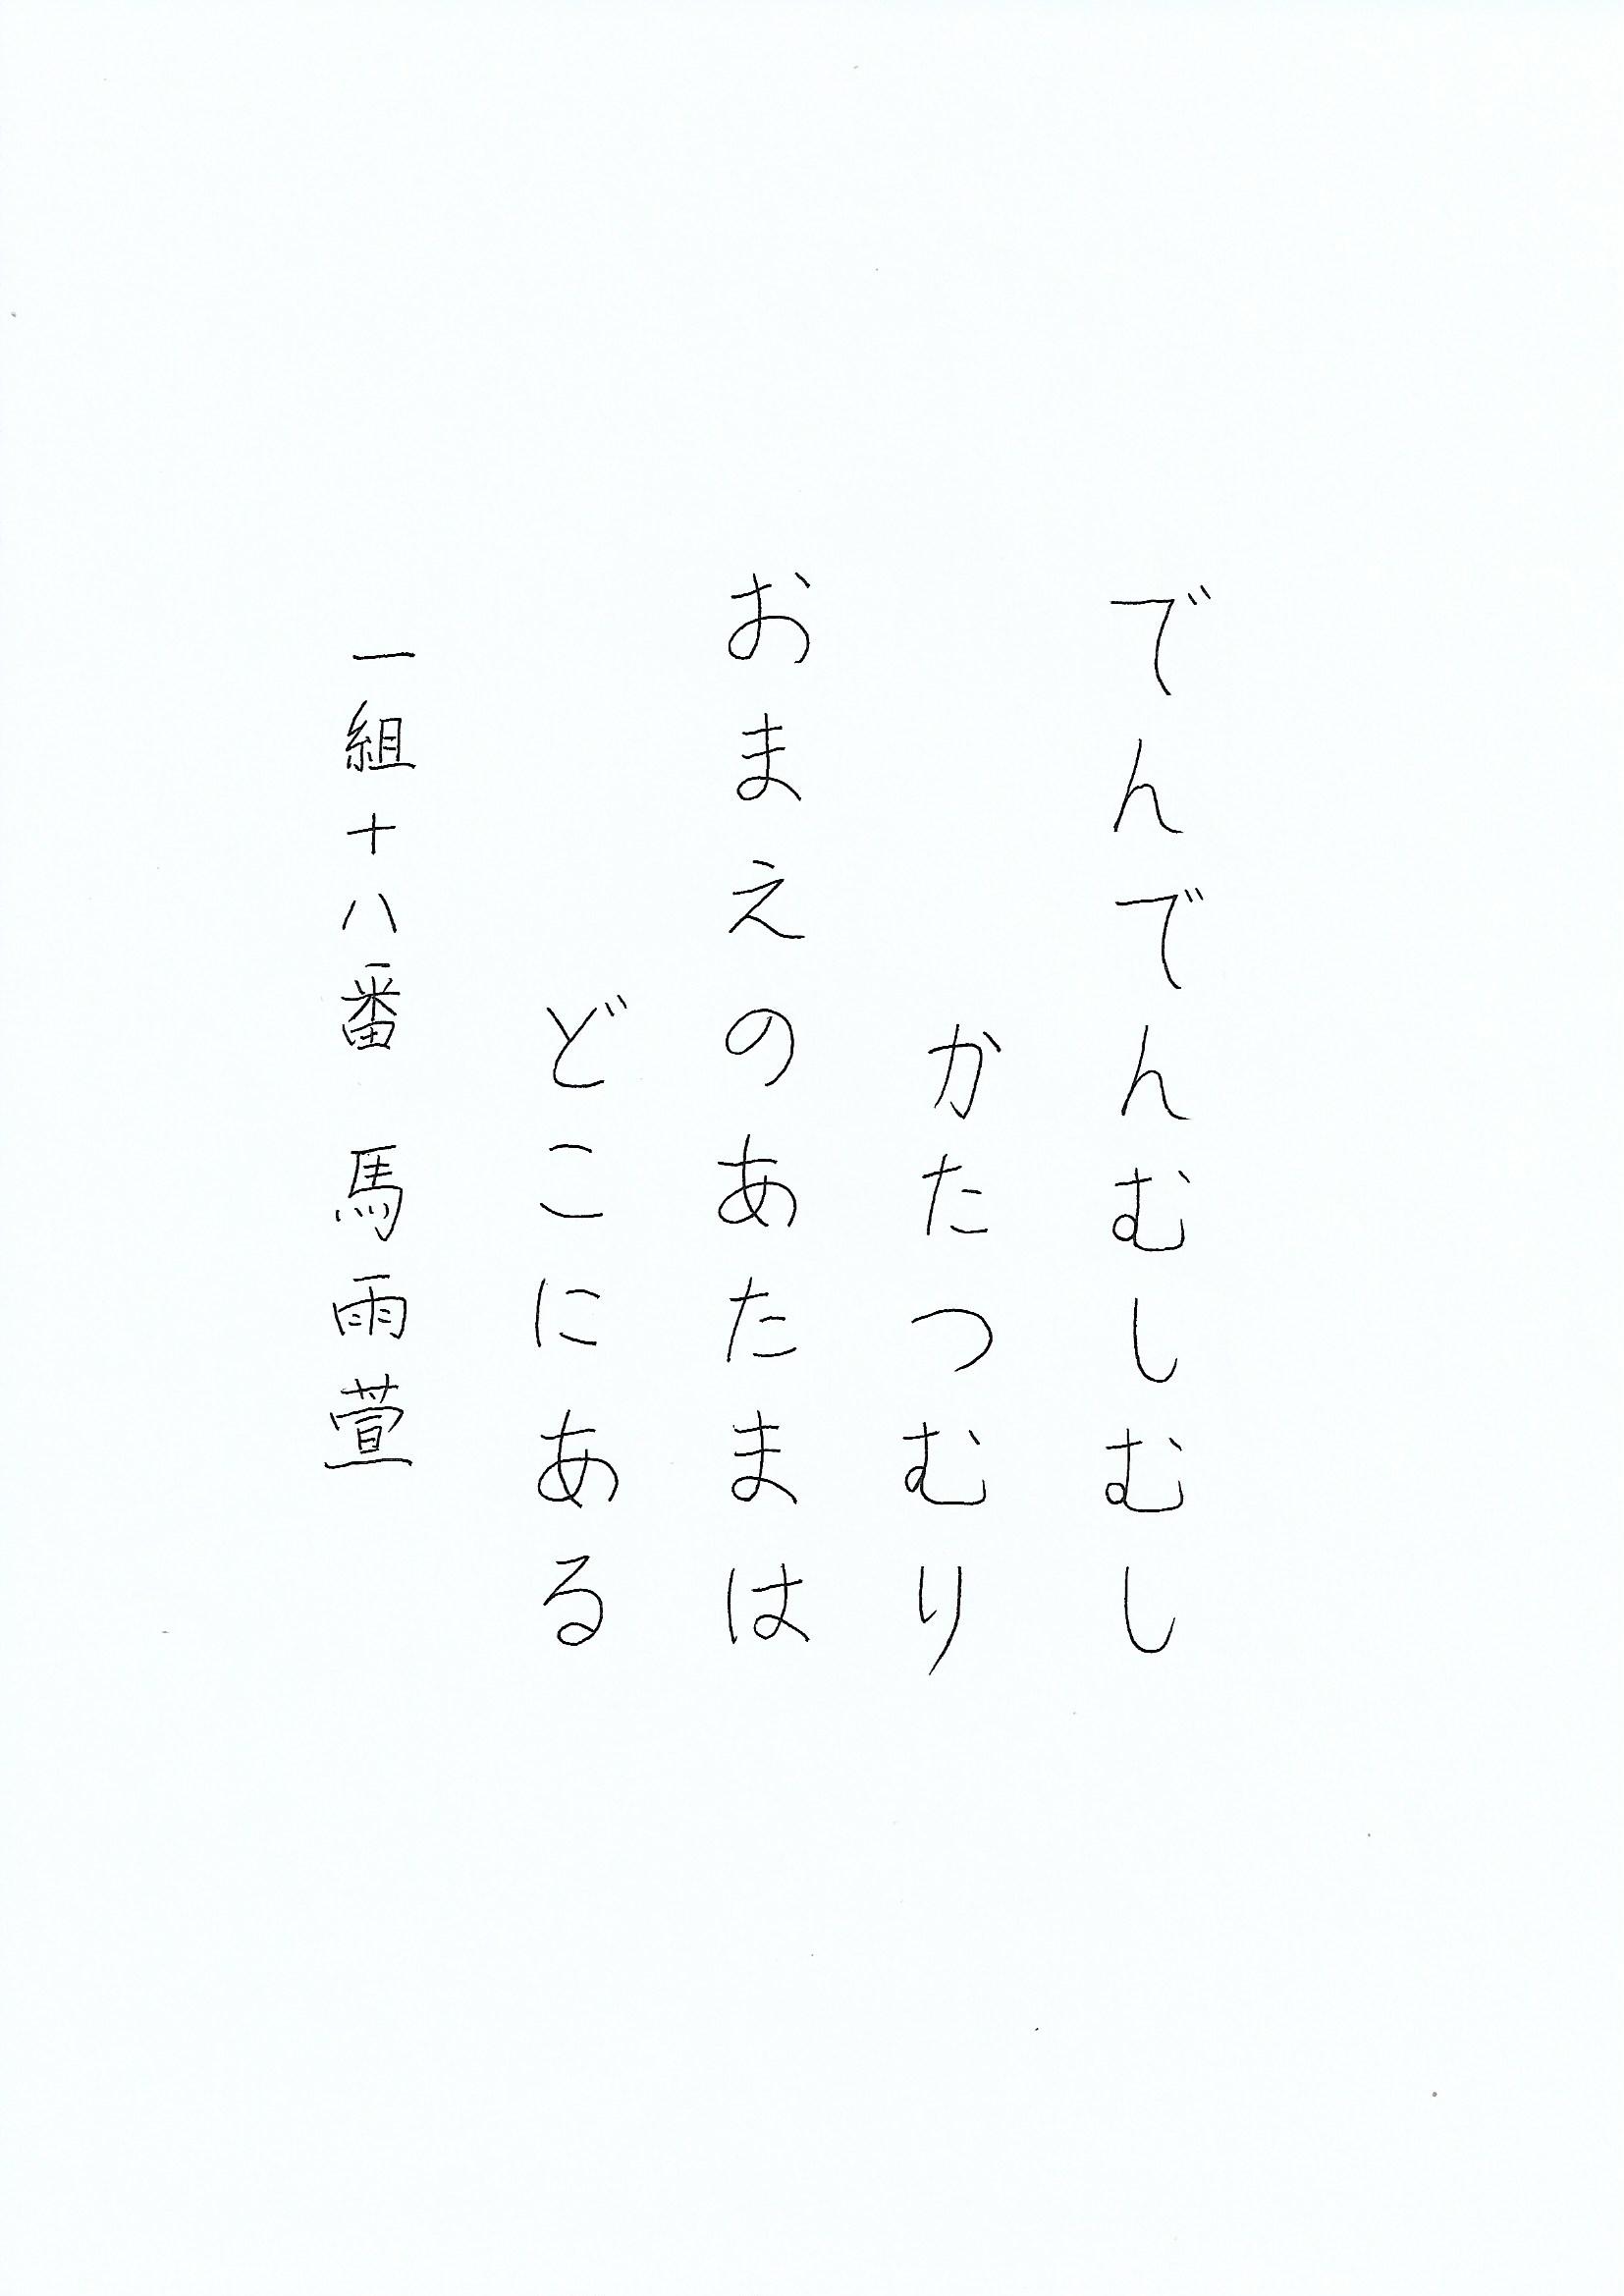 でんでんむしむし
かたつむり
おまえのあたまは
どこにある
一組十八番 馬雨萱